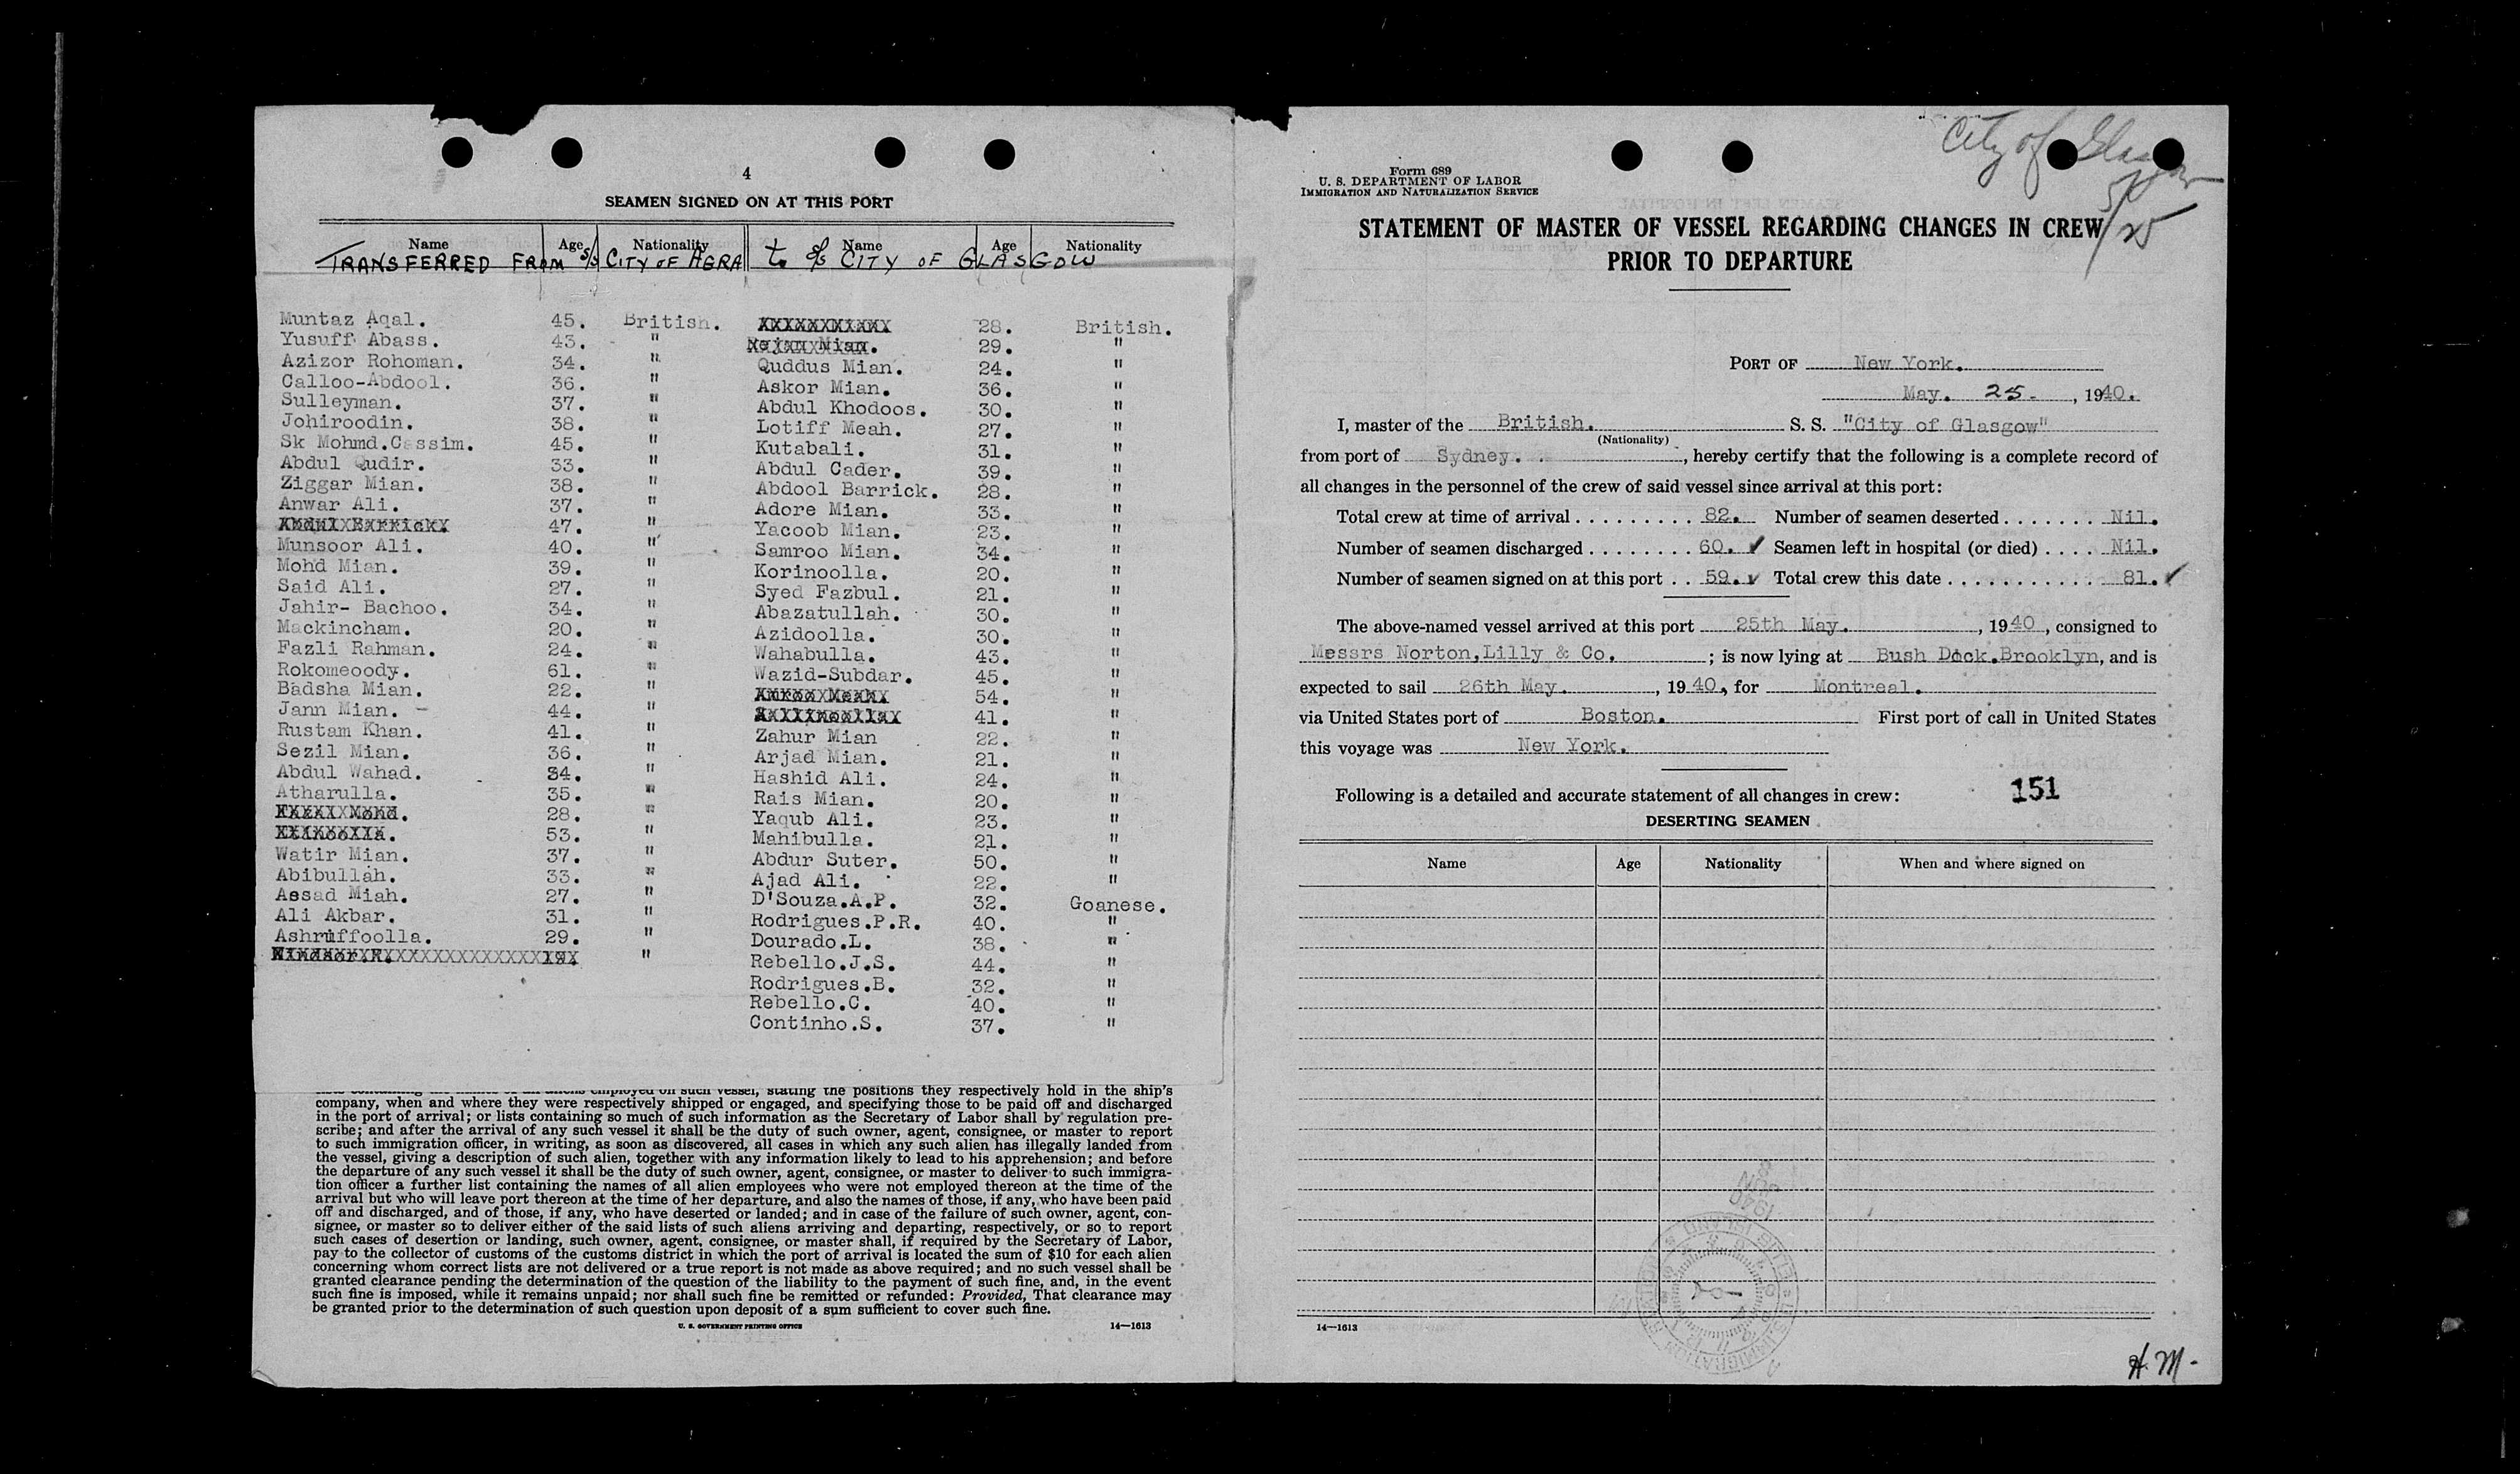 4
SEAMEN SIGNED ON AT THIS PORT
Name Age Nationality Name Age Nationality
TRANSFERRED FROM S/S CITY OF AGRA to S/S CITY OF GLASGOW
Muntaz Aqal. 45. British.
Yusuff Abass. 43. "
Azizor Rohoman. 34. "
Calloo-Abdool. 36. "
Sulleyman. 37. "
Johiroodin. 38. "
Sk Mohmd.Cassim. 45. "
Abdul Qudir. 33. "
Ziggar Mian. 38. "
Anwar Ali. 37. "
Abdul Barrick 47. "
Munsoor Ali. 40. "
Mohd Mian. 39. "
Said Ali. 27. "
Jahir- Bachoo. 34. "
Mackincham. 20. "
Fazli Rahman. 24. "
Rokomeoody. 61. "
Badsha Mian. 22. "
Jann Mian. - 44. "
Rustam Khan. 41. "
Sezil Mian. 36. "
Abdul Wahad. 34. "
Atharulla. 35. "
28. "
53. "
Watir Mian. 37. "
Abibullah. 33. "
Assad Miah. 27. "
Ali Akbar. 31. "
Ashruffoolla. 29. "
Windsor.R. 19. "
28. British.
Mian. 29. "
Quddus Mian. 24. "
Askor Mian. 36. "
Abdul Khodoos. 30. "
Lotiff Meah. 27. "
Kutabali. 31. "
Abdul Cader. 39. "
Abdool Barrick. 28. "
Adore Mian. 33. "
Yacoob Mian. 23. "
Samroo Mian. 34. "
Korinoolla. 20. "
Syed Fazbul. 21. "
Abazatullah. 30. "
Azidoolla. 30. "
Wahabulla. 43. "
Wazid-Subdar. 45. "
54. "
41. "
Zahur Mian 22. "
Arjad Mian. 21. "
Hashid Ali. 24. "
Rais Mian. 20. "
Yaqub Ali. 23. "
Mahibulla. 21. "
Abdur Suter. 50. "
Ajad Ali. 22. "
D'Souza.A.P. 32. Goanese.
Rodrigues.P.R. 40. "
Dourado.L. 38. "
Rebello.J.S. 44. "
Rodrigues.B. 32. "
Rebello.C. 40. "
Continho.S. 37. "
employed on such vessel, stating the positions they respectively hold in the ship's
company, when and where they were respectively shipped or engaged, and specifying those to be paid off and discharged
in the port of arrival; or lists containing so much of such information as the Secretary of Labor shall by regulation pre-
scribe; and after the arrival of any such vessel it shall be the duty of such owner, agent, consignee, or master to report
to such immigration officer, in writing, as soon as discovered, all cases in which any such alien has illegally landed from
the vessel, giving a description of such alien, together with any information likely to lead to his apprehension; and before
the departure of any such vessel it shall be the duty of such owner, agent, consignee, or master to deliver to such immigra-
tion officer a further list containing the names of all alien employees who were not employed thereon at the time of the
arrival but who will leave port thereon at the time of her departure, and also the names of those, if any, who have been paid
off and discharged, and of those, if any, who have deserted or landed; and in case of the failure of such owner, agent, con-
signee, or master so to deliver either of the said lists of such aliens arriving and departing, respectively, or so to report
such cases of desertion or landing, such owner, agent, consignee, or master shall, if required by the Secretary of Labor,
pay to the collector of customs of the customs district in which the port of arrival is located the sum of $10 for each alien
concerning whom correct lists are not delivered or a true report is not made as above required; and no such vessel shall be
granted clearance pending the determination of the question of the liability to the payment of such fine, and, in the event
such fine is imposed, while it remains unpaid; nor shall such fine be remitted or refunded: Provided, That clearance may
be granted prior to the determination of such question upon deposit of a sum sufficient to cover such fine.
U. S. GOVERNMENT PRINTING OFFICE 14—1613
City of Glasgow
5/25
Form 689
U. S. DEPARTMENT OF LABOR
IMMIGRATION AND NATURALIZATION SERVICE
STATEMENT OF MASTER OF VESSEL REGARDING CHANGES IN CREW
PRIOR TO DEPARTURE
PORT OF New York.
May. 25. , 1940.
I, master of the British. S. S. "City of Glasgow"
(Nationality)
from port of Sydney. , hereby certify that the following is a complete record of
all changes in the personnel of the crew of said vessel since arrival at this port:
Total crew at time of arrival . . . . . . . . . 82. Number of seamen deserted . . . . . . . Nil.
Number of seamen discharged . . . . . . . . 60. ✓ Seamen left in hospital (or died) . . . . Nil.
Number of seamen signed on at this port . . 59. ✓ Total crew this date . . . . . . . . . . . . 81. ✓
The above-named vessel arrived at this port 25th May. , 1940 , consigned to
Messrs Norton,Lilly & Co. ; is now lying at Bush Dock.Brooklyn, and is
expected to sail 26th May. , 1940, for Montreal.
via United States port of Boston. First port of call in United States
this voyage was New York.
Following is a detailed and accurate statement of all changes in crew:
151
DESERTING SEAMEN
Name Age Nationality When and where signed on
14—1613
H. M.